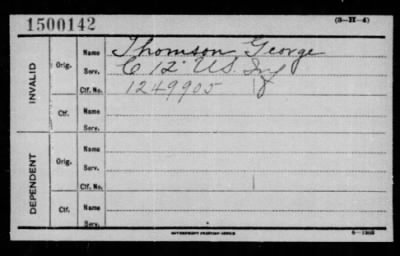 1500142
(3—H—4)
INVALID
Orig.
Name Thomson George
Serv. C 12" U.S. Inf
Ctf. No. 1249905
Ctf.
Name
Serv.
DEPENDENT
Orig.
Name
Serv.
Ctf. No.
Ctf.
Name
Serv.